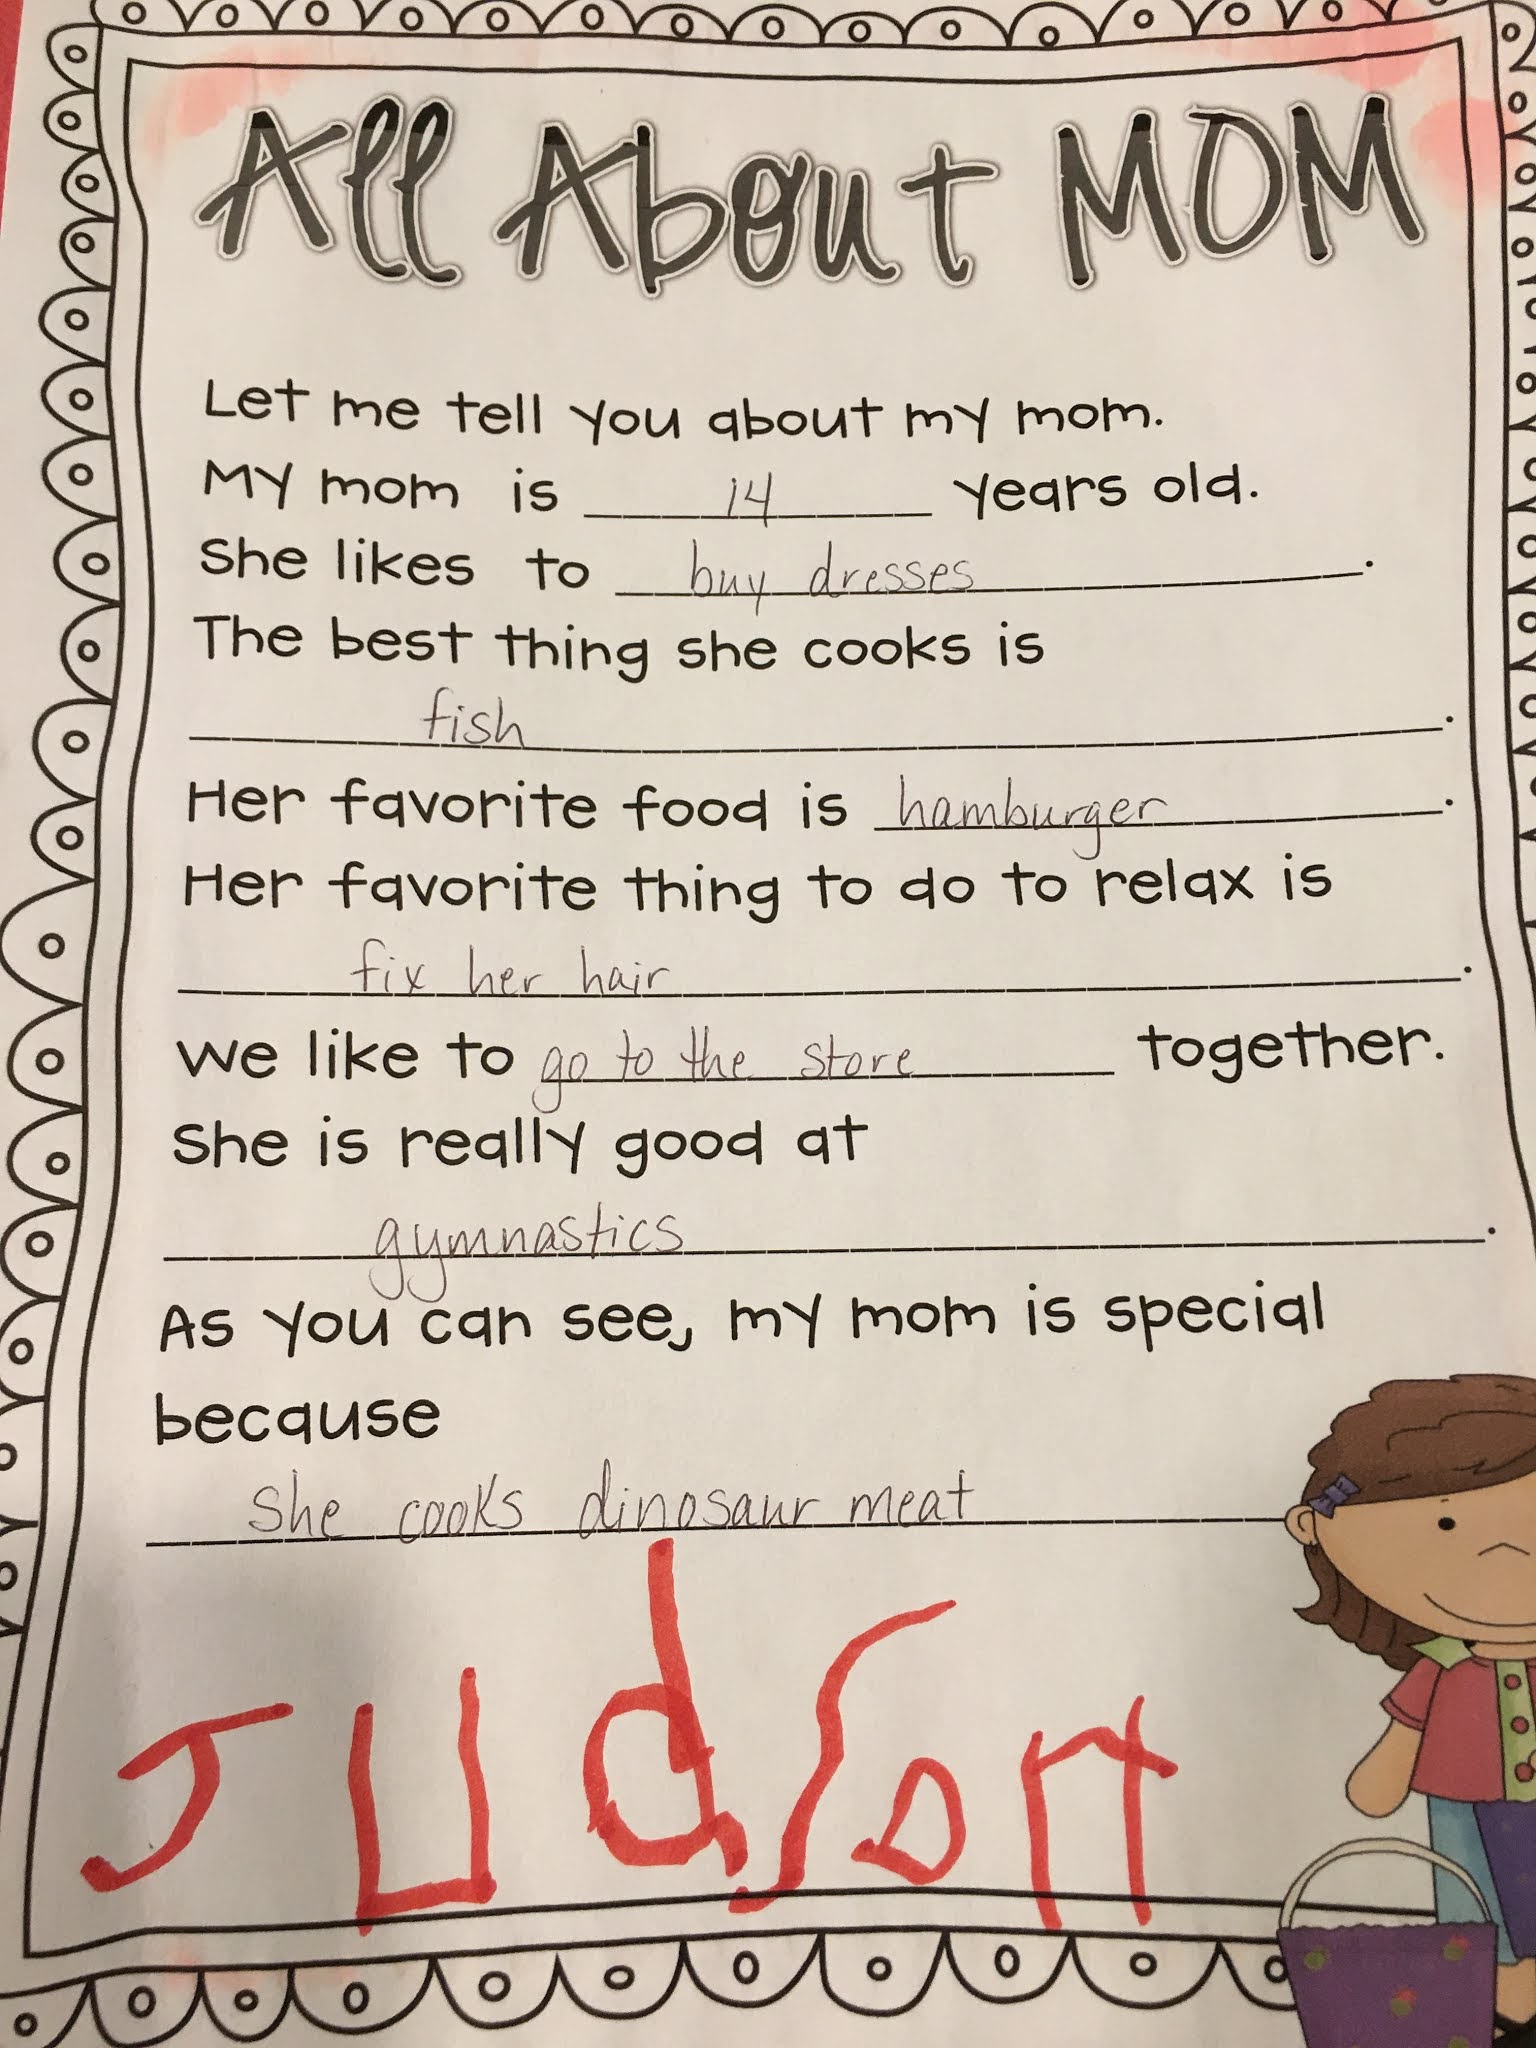 All About MOM
Let me tell you about my mom.
My mom is 14 years old.
She likes to buy dresses.
The best thing she cooks is
fish.
Her favorite food is hamburger.
Her favorite thing to do to relax is
fix her hair.
We like to go to the store together.
She is really good at
gymnastics.
As you can see, my mom is special
because
she cooks dinosaur meat
Judson